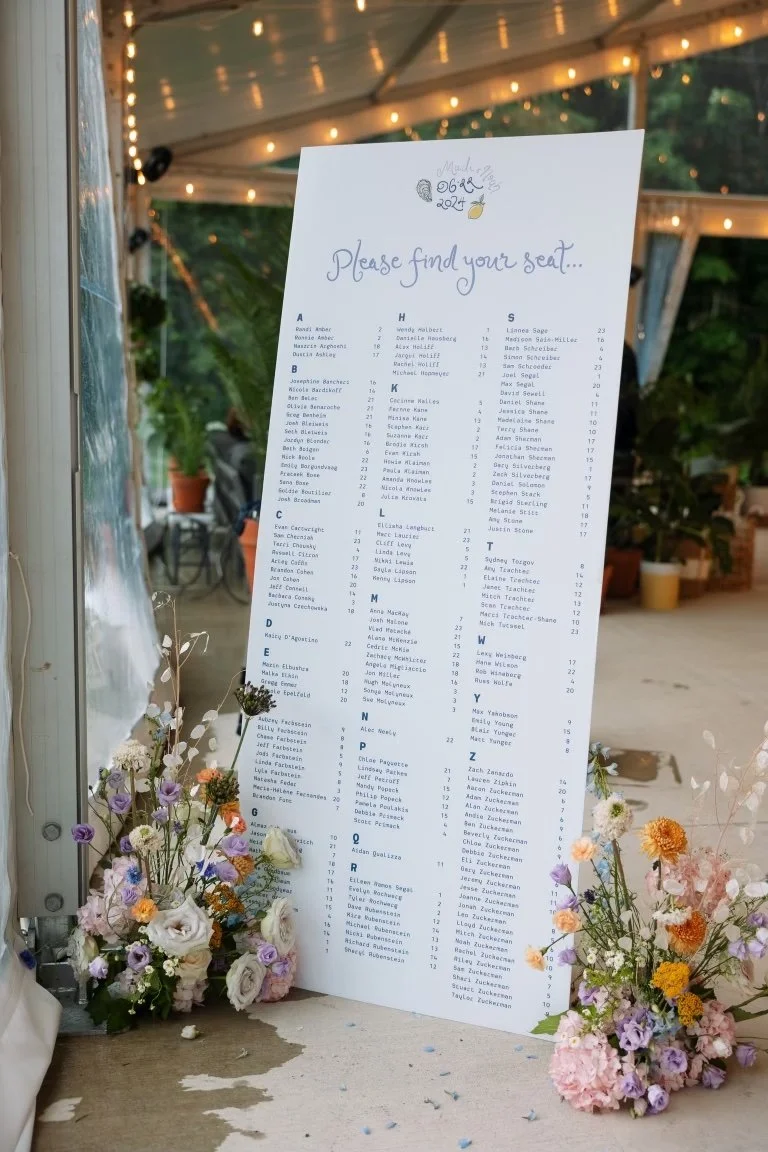 06.22
2024
Please find your seat...
A
Randi Amber 2
Ronnie Amber 2
Dustin Ashley 17
B
Josephine Bancheri 16
Nicole Bardikoff 14
Olivia Benaroche 21
Greg Benhaim 21
Josh Bleiweis 16
Seth Bleiweis 16
Jordyn Blonder 16
Beth Bolgen 6
Nick Boole 22
Emily Borgundvaag 23
Prateek Bose 22
Sana Bose 22
Goldie Boutilier 8
Josh Broadman 20
C
Evan Cartwright 11
Sam Cherniak 23
Terri Chousky 4
Russell Citron 17
Brandon Cohen 16
Jon Cohen 20
Jeff Connell 14
Barbara Consky 3
Justyna Czechowska 18
D
Kaity D'Agostino 22
E
Mazin Elbushra 20
Malka Elkin 18
Gregg Emmer 12
Epelfeld 20
Aubrey Farbstein 9
Billy Farbstein 8
Chase Farbstein 8
Jeff Farbstein 5
Jodi Farbstein 8
Linda Farbstein 5
Lyle Farbstein 8
Natasha Fedar 3
Marie-Hélène Fernandes 20
Brandon Funt 7
G
H
Wendy Halbert 1
Danielle Hausberg 16
Alex Holiff 13
Jacqui Holiff 14
Rachel Holiff 13
Michael Hopmeyer 21
K
Corinne Kalles 5
Fernne Kane 4
Minine Kane 13
Stephen Karr 2
Suzanne Karr 2
Brodie Kirsh 17
Evan Kirsh 15
Howie Klaiman 2
Paula Klaiman 2
Amanda Knowles 3
Nicola Knowles 3
Julie Kravats 15
L
Ellisha Langburt 21
Marc Laurier 23
Cliff Levy 5
Linda Levy 5
Nikki Lewis 22
Gayle Lipson 1
Kenny Lipson 1
M
Anna MacKay 7
Josh Malone 23
Vlad Matecka 21
Alana McKenzie 15
Cedric McKie 22
Zachary McWhirter 18
Angelo Migliaccio 18
Jon Miller 16
Hugh Molyneux 3
Sonya Molyneux 3
Sue Molyneux 3
N
Alec Neely 22
P
Chloe Paquette 21
Lindsay Parkes 7
Jeff Perzoff 15
Mandy Popeck 12
Philip Popeck 12
Pamela Poulakis 15
Debbie Primack 4
Scott Primack 4
Q
Aidan Qualizza 11
R
Eileen Ramos Segal 1
Evelyn Rochwerg 2
Tyler Rochwerg 14
Dave Rubenstein 2
Kira Rubenstein 12
Michael Rubenstein 13
Nicki Rubenstein 13
Richard Rubenstein 2
Sheryl Rubenstein 12
S
Linnea Sage 23
Madison Sain-Miller 16
Barb Schreiber 4
Simon Schreiber 4
Sam Schroeder 23
Joel Segal 1
Max Segal 20
David Sewell 4
Daniel Shane 11
Jessica Shane 11
Madelaine Shane 10
Terry Shane 10
Adam Sherman 17
Felicia Sherman 17
Jonathan Sherman 15
Gary Silverberg 1
Zach Silverberg 17
Daniel Solomon 9
Stephen Stack 5
Brigid Sterling 11
Melanie Stitt 18
Amy Stone 17
Justin Stone 17
T
Sydney Torgov 8
Amy Trachter 14
Elaine Trachter 12
Janet Trachter 12
Mitch Trachter 13
Stan Trachter 12
Marci Trachter-Shane 10
Nick Tucsmel 23
W
Lexy Weinberg 17
Hana Wilson 22
Rob Wineberg 4
Russ Wolfe 20
Y
Max Yakobson 9
Emily Young 15
Blair Yunger 8
Matt Yunger 8
Z
Zach Zanardo 14
Lauren Zipkin 20
Aaron Zuckerman 6
Adam Zuckerman 7
Alan Zuckerman 7
Andie Zuckerman 6
Ben Zuckerman
Beverly Zuckerman
Chloe Zuckerman
Debbie Zuckerman
Eli Zuckerman
Gary Zuckerman
Jeremy Zuckerman
Jesse Zuckerman
Joanne Zuckerman
Jonah Zuckerman
Leo Zuckerman
Lloyd Zuckerman
Mitch Zuckerman
Noah Zuckerman
Rachel Zuckerman
Riley Zuckerman
Sam Zuckerman
Shari Zuckerman
Stuart Zuckerman
Taylor Zuckerman